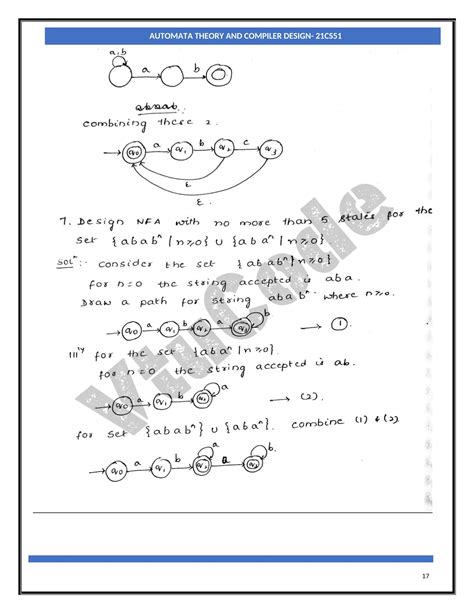 AUTOMATA THEORY AND COMPILER DESIGN- 21CS51
a,b
a b
combining these 2.
a b c
q0 q1 q2 q3
ε
ε
7. Design NFA with no more than 5 states for the
set {ababⁿ | n≥0} ∪ {abaⁿ | n≥0}
Solⁿ:- consider the set {ababⁿ | n≥0}
for n=0 the string accepted is aba.
Draw a path for string ababⁿ where n≥0.
b
a b a
q0 q1 q2 q3 → (1).
IIIly for the set {abaⁿ | n≥0}.
for n=0 the string accepted is ab.
a
a b
q0 q1 q2 → (2).
for set {ababⁿ} ∪ {abaⁿ}. combine (1) & (2).
a b
a b a
q0 q1 q2 q3
VtuCode
17